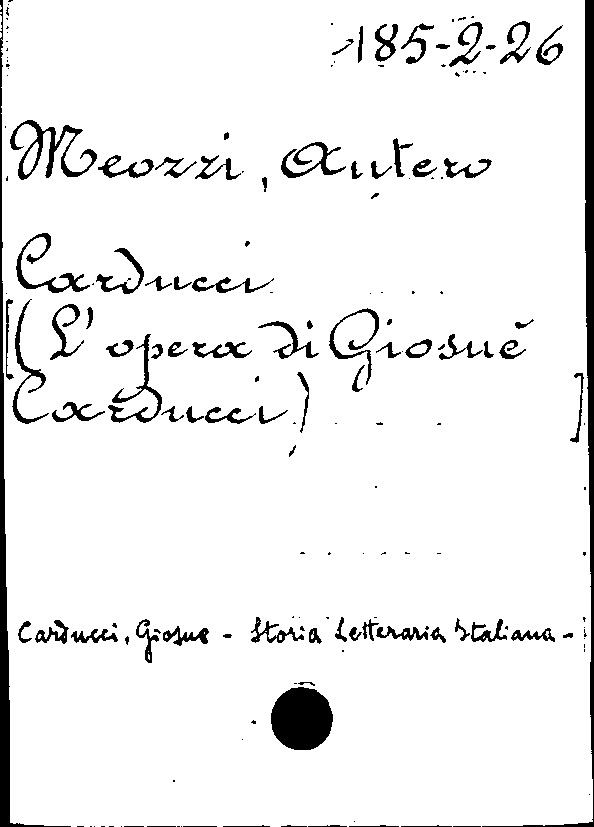 185-2-26
Meozzi, Antero
Carducci
[(L'opera di Giosuè
Carducci)]
Carducci, Giosue - Storia Letteraria Italiana -